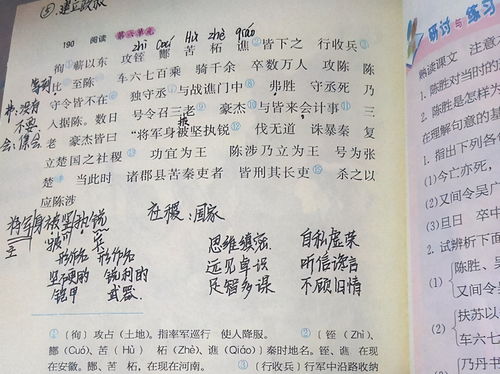 ⑤.建立政权
190 阅读 第六单元
zhì Cuó Hù zhè qiáo
徇①蕲以东 攻铚酂苦柘谯②皆下之 行收兵③
比 至陈 车六七百乘 骑千余 卒数万人 攻陈 陈
守令皆不在 独守丞 与战谯门中 弗胜 守丞死 乃
弗:没有
不要
会:集会
入据陈。数日 号令召三老 豪杰 与皆来会计事
豪杰皆曰 “将军身被坚执锐 伐无道 诛暴秦 复
立楚国之社稷 功宜为王 陈涉乃立为王 号为张
楚 当此时 诸郡县苦秦吏者 皆刑其长吏 杀之以
应陈涉
将军身被坚执锐
社稷:国家
形作名 形作名
坚硬的 锐利的
铠甲 武器
思维缜密 自私虚荣
远见卓识 听信谗言
足智多谋 不顾旧情
①〔徇〕攻占(土地)。指率军巡行 使人降服。 ②〔铚(Zhì)、
酂(Cuó)、苦(Hù) 柘(Zhè)、谯(Qiáo)〕秦时地名。铚、谯 在现
在安徽。酂 苦 柘,在现在河南。 ③〔行收兵〕行军中沿路收纳
研讨与练习
熟读课文 注意
1. 陈胜对当时的
2. 陈胜是怎样为
在理解句意的基
1. 指出下列各
(1)今亡亦死,
(2)又间令吴广
(3)旦日 卒中
2. 试辨析下面
(1) 陈胜、吴
又间令吴
(2) 扶苏以
车六七
乃丹书